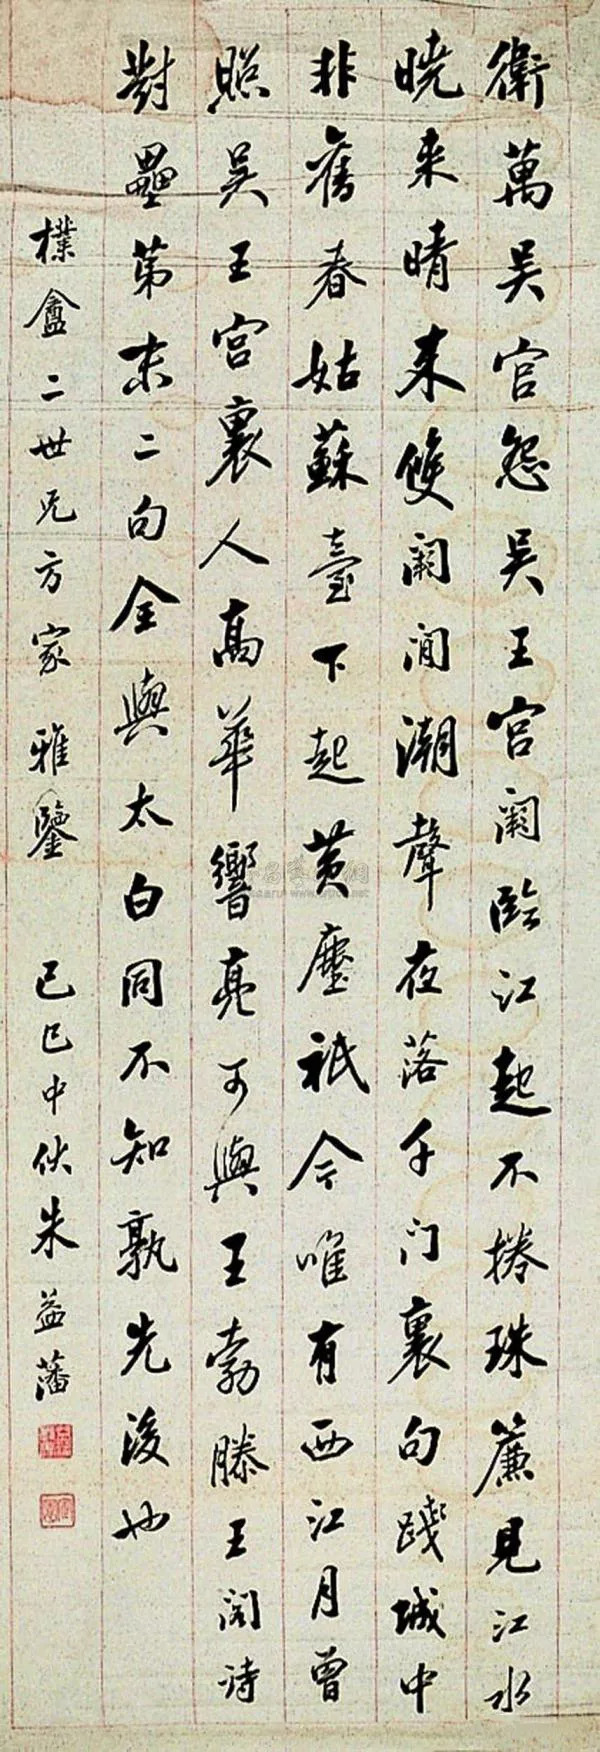 衛萬吳宮怨吳王宮闕臨江起不捲珠簾見江水
曉來晴來雙闕間潮聲夜落千門裏句踐城中
非舊春姑蘇臺下起黃塵祇今唯有西江月曾
照吳王宮裏人高華響亮可與王勃滕王閣詩
對壘第末二句全與太白同不知孰先後也
樸盦二世兄方家雅鑒 己巳中伏朱益藩